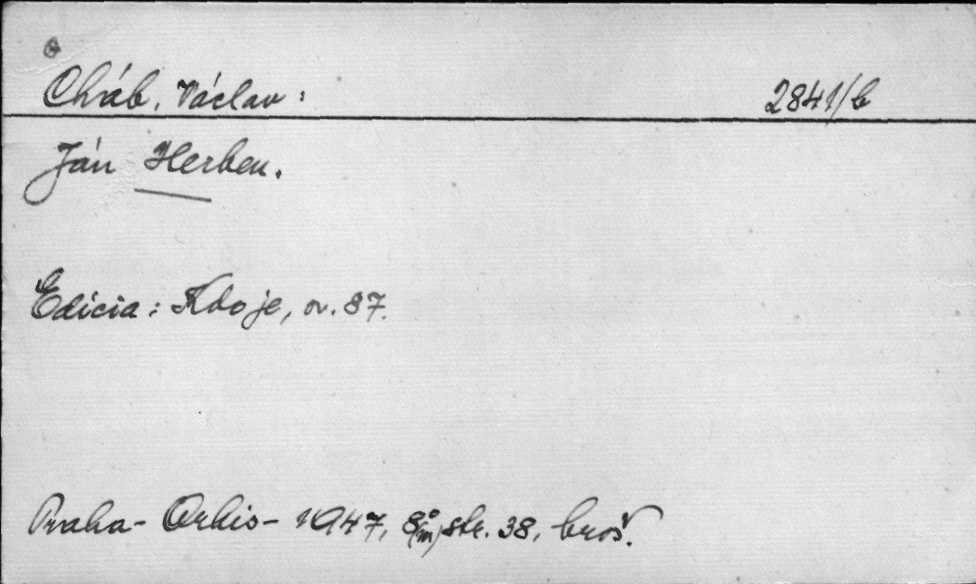 Cháb, Václav: 2841/b
Ján Herben.
Edícia: Kdo je, sv. 87.
Praha - Orbis - 1947, 8°(m), str. 38, brož.